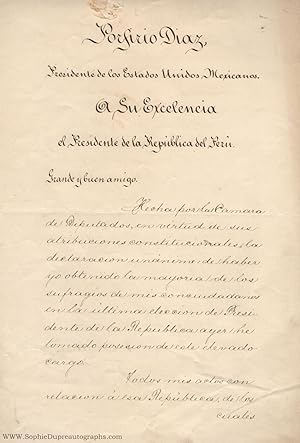 Porfirio Diaz,
Presidente de los Estados Unidos Mexicanos.
A Su Excelencia
el Presidente de la República del Perú.
Grande y buen amigo.
Hecha por la Camara
de Diputados, en virtud de sus
atribuciones constitucionales, la
declaracion unánime de haber
yo obtenido la mayoria de los
sufragios de mis conciudadanos
en la última eleccion de Presi-
dente de la República ayer he
tomado posesion de este elevado
cargo.
Todos mis actos con
relacion á esa República, de los
cuales
www.SophieDupreautographs.com